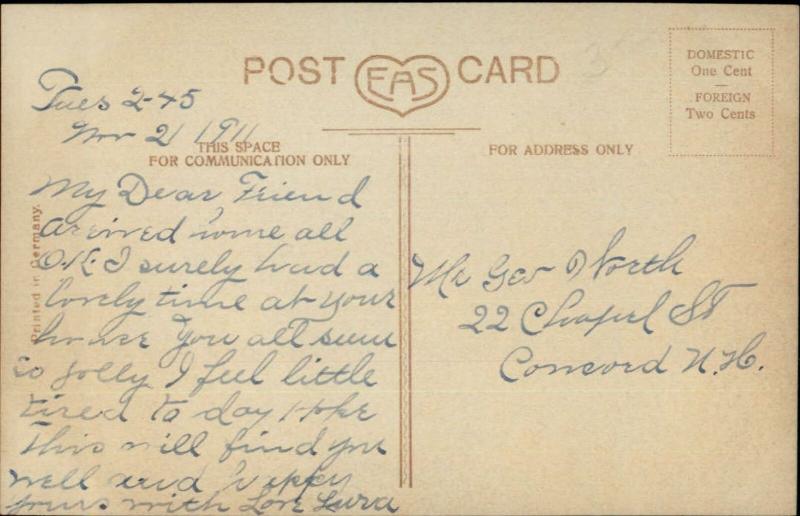 POST EAS CARD
DOMESTIC
One Cent
FOREIGN
Two Cents
Tues 2-45
Nov 21 1911
THIS SPACE
FOR COMMUNICATION ONLY
FOR ADDRESS ONLY
Printed in Germany.
My Dear Friend
arrived home all
O.K. I surely had a
lovely time at your
house You all seem
so jolly I feel little
tired to day Hope
This will find you
well and happy
yours with Love Lura
Mr Geo North
22 Chapel St
Concord N.H.